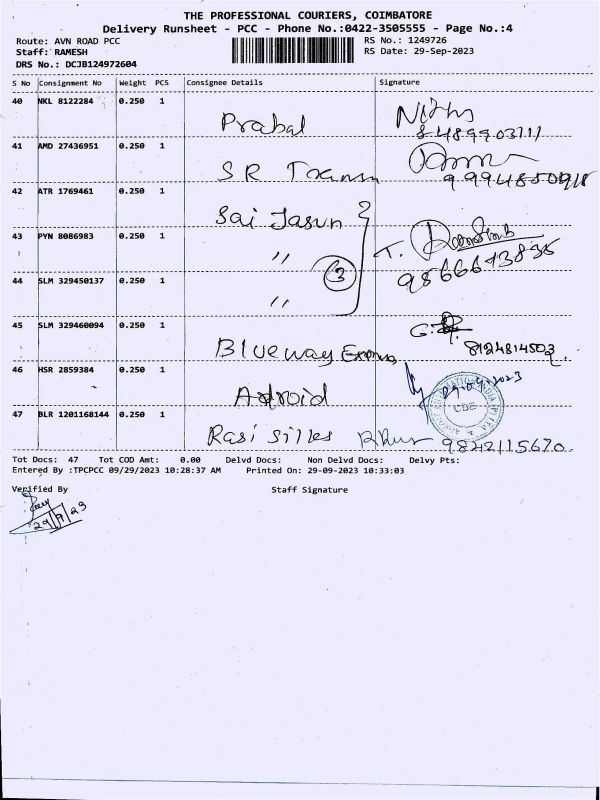 THE PROFESSIONAL COURIERS, COIMBATORE
Delivery Runsheet - PCC - Phone No.:0422-3505555 - Page No.:4
Route: AVN ROAD PCC RS No.: 1249726
Staff: RAMESH RS Date: 29-Sep-2023
DRS No.: DCJB124972604
S No Consignment No Weight PCS Consignee Details Signature
40 NKL 8122284 0.250 1
Prabal
41 AMD 27436951 0.250 1
SR
42 ATR 1769461 0.250 1
Sai Jasun
43 PYN 8086983 0.250 1
" 3
44 SLM 329450137 0.250 1
"
45 SLM 329460094 0.250 1
Blueway 8124814503
46 HSR 2859384 0.250 1
Android 29-09-2023
47 BLR 1201168144 0.250 1
Rasi Silks 9842115670
Tot Docs: 47 Tot COD Amt: 0.00 Delvd Docs: Non Delvd Docs: Delvy Pts:
Entered By :TPCPCC 09/29/2023 10:28:37 AM Printed On: 29-09-2023 10:33:03
Verified By Staff Signature
29/9/23